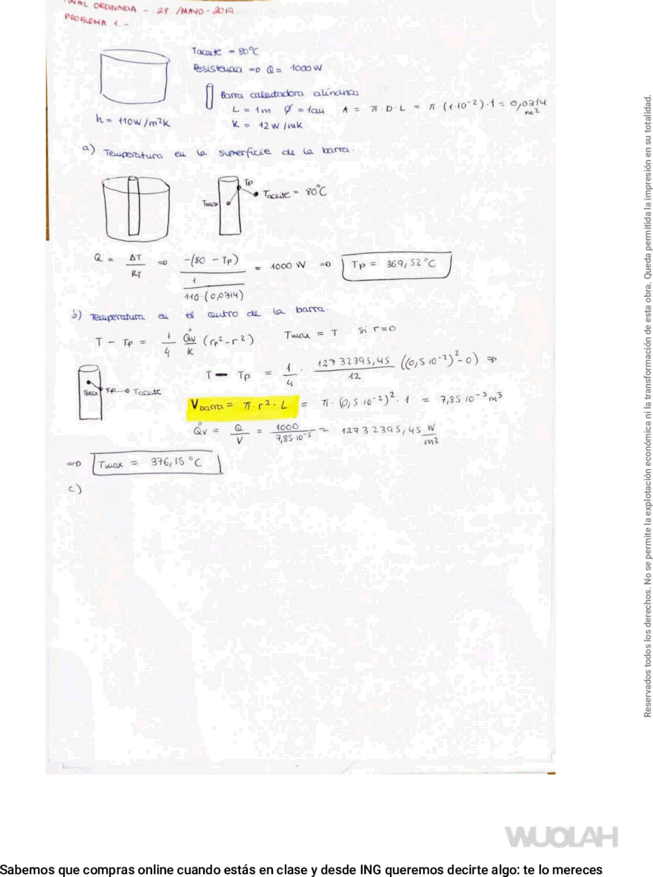 FINAL ORDINARIA - 27 /MAYO - 2019
PROBLEMA 1.-
Taceite = 80°C
Resistencia => Q = 1000W
Barra calentadora cilíndrica
L = 1m Ø = 1cm A = π·D·L = π (1·10⁻²)·1 = 0,0314 m²
h = 110W/m²K
K = 12 W/mK
a) Temperatura en la superficie de la barra.
TP
Tmax
Taceite = 80°C
Q = ΔT/RT => -(80 - TP) / (1/(110·(0,0314))) = 1000 W => TP = 369,52 °C
b) Temperatura en el centro de la barra.
T - TP = 1/4 Q̇v/K (rp² - r²) Tmax = T si r=0
T - TP = 1/4 · 12732395,45/12 ((0,5·10⁻²)² - 0) =>
Tmax TP Taceite
Vbarra = π·r²·L = π·(0,5·10⁻²)²·1 = 7,85·10⁻⁵ m³
Q̇v = Q/V = 1000/7,85·10⁻⁵ = 12732395,45 W/m³
=> Tmax = 376,15 °C
c)
Reservados todos los derechos. No se permite la explotación económica ni la transformación de esta obra. Queda permitida la impresión en su totalidad.
WUOLAH
Sabemos que compras online cuando estás en clase y desde ING queremos decirte algo: te lo mereces